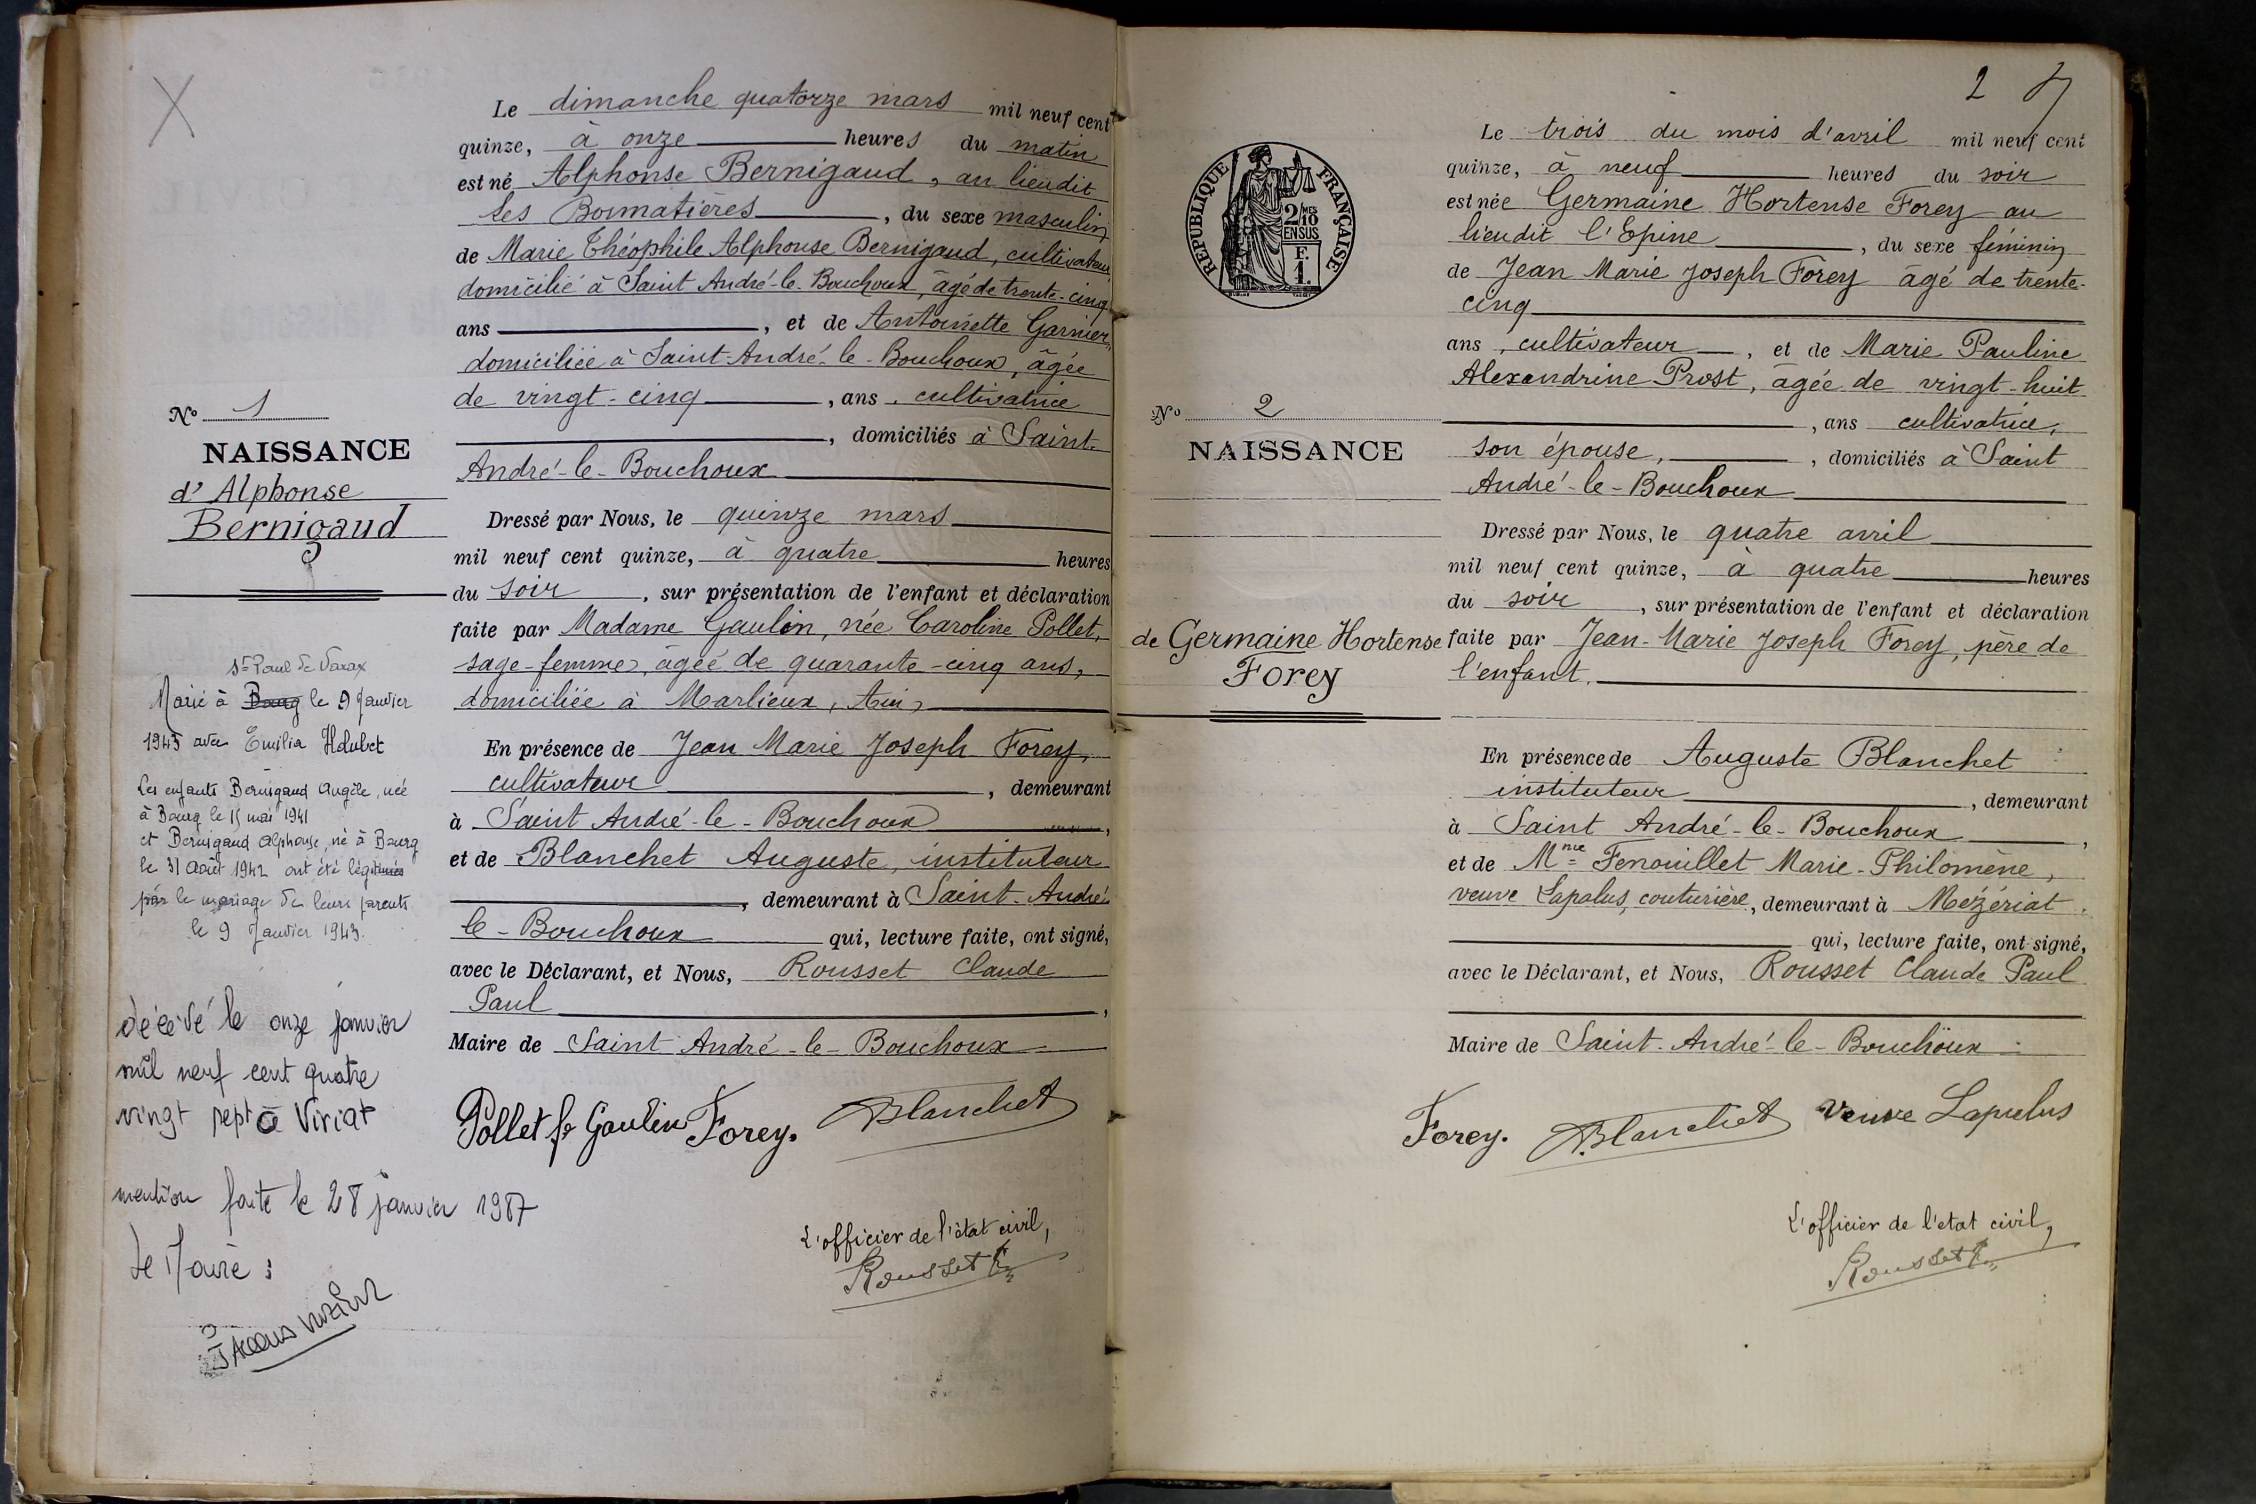 Le dimanche quatorze mars mil neuf cent
quinze, à onze heures du matin
est né Alphonse Bernigaud, au lieudit
Les , du sexe masculin
de Marie Théophile Alphonse Bernigaud, cultivateur
domicilié à Saint André-le-Bouchoux, âgé de trente-cinq
ans , et de Antoinette Garnier,
domiciliée à Saint-André-le-Bouchoux, âgée
de vingt-cinq , ans , cultivatrice
, domiciliés à Saint-
André-le-Bouchoux
Dressé par Nous, le quinze mars
mil neuf cent quinze, à quatre heures
du soir , sur présentation de l'enfant et déclaration
faite par Madame Gaulin, née Caroline Pollet,
sage-femme, âgée de quarante-cinq ans,
domiciliée à Marlieux, Ain,
En présence de Jean Marie Joseph Forey,
cultivateur , demeurant
à Saint André-le-Bouchoux ,
et de Blanchet Auguste, instituteur
, demeurant à Saint-André
le-Bouchoux qui, lecture faite, ont signé,
avec le Déclarant, et Nous, Rousset Claude
Paul ,
Maire de Saint André-le-Bouchoux
Pollet fe Gaulin Forey. ABlanchet
L'officier de l'état civil,
Rousset
No 1
NAISSANCE
d'Alphonse
Bernigaud
St Paul de Varax
Marié à Bourg le 9 Janvier
1943 avec Emilia
Les enfants Bernigaud Angèle, née
à Bourg le 15 mai 1941
et Bernigaud Alphonse, né à Bourg
le 31 Août 1942 ont été légitimés
par le mariage de leurs parents
le 9 Janvier 1943.
décédé le onze janvier
mil neuf cent quatre
vingt sept à Viriat
mention faite le 28 janvier 1987
Le Maire :
2
RÉPUBLIQUE FRANÇAISE
2/MES
10
EN SUS
F.
1.
No 2
NAISSANCE
de Germaine Hortense
Forey
Le trois du mois d'avril mil neuf cent
quinze, à neuf heures du soir
est née Germaine Hortense Forey au
lieudit l'Epine , du sexe féminin
de Jean Marie Joseph Forey âgé de trente-
cinq
ans , cultivateur , et de Marie Pauline
Alexandrine Prost, âgée de vingt-huit
, ans cultivatrice,
son épouse, , domiciliés à Saint
André-le-Bouchoux
Dressé par Nous, le quatre avril
mil neuf cent quinze, à quatre heures
du soir , sur présentation de l'enfant et déclaration
faite par Jean-Marie Joseph Forey, père de
l'enfant.
En présence de Auguste Blanchet
instituteur , demeurant
à Saint André-le-Bouchoux ,
et de Mme Fenouillet Marie-Philomène,
veuve Lapalus, couturière, demeurant à Mézériat.
qui, lecture faite, ont signé,
avec le Déclarant, et Nous, Rousset Claude Paul
Maire de Saint-André-le-Bouchoux
Forey. ABlanchet Veuve Lapalus
L'officier de l'etat civil,
Rousset